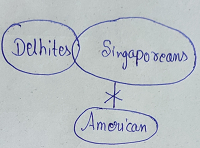 Delhites
Singaporeans
American